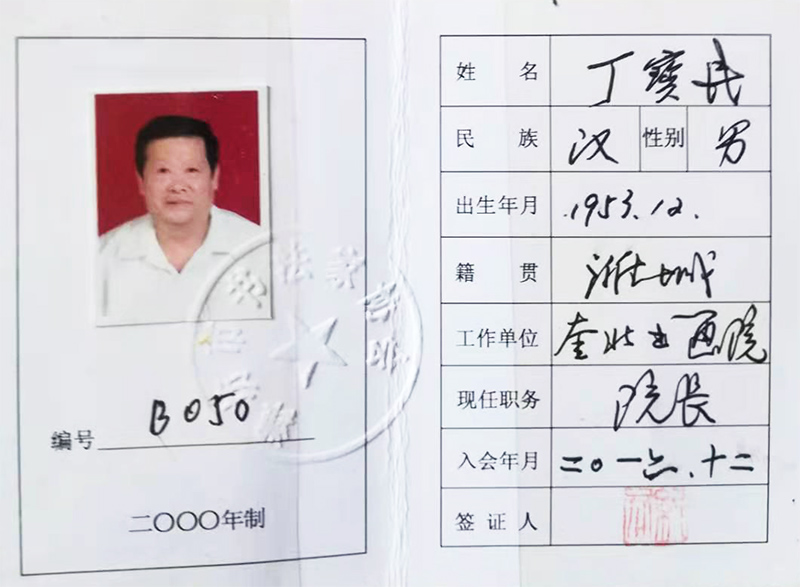 B050
编号
二〇〇〇年制
姓 名 丁寳民
民 族 汉 性别 男
出生年月 1953.12.
籍 贯 潍城
工作单位 奎北书画院
现任职务 院長
入会年月 二〇一六.十二
签 证 人